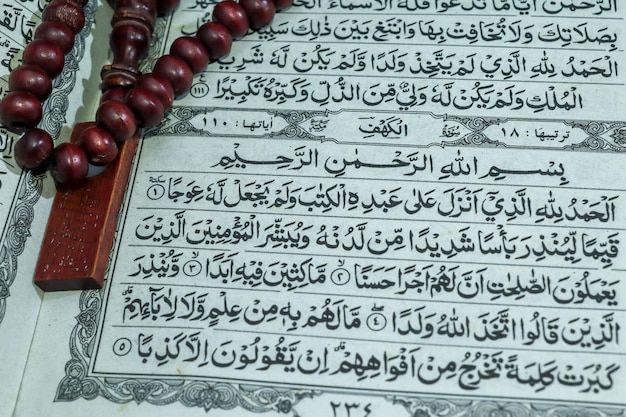 الرَّحْمٰنَ اَيًّامَّا تَدْعُوْا فَلَهُ الْاَسْمَاۤءُ
بِصَلَاتِكَ وَلَا تُخَافِتْ بِهَا وَابْتَغِ بَيْنَ ذٰلِكَ
الْحَمْدُ لِلّٰهِ الَّذِيْ لَمْ يَتَّخِذْ وَلَدًا وَّلَمْ يَكُنْ لَّهٗ شَرِيْكٌ
الْمُلْكِ وَلَمْ يَكُنْ لَّهٗ وَلِيٌّ مِّنَ الذُّلِّ وَكَبِّرْهُ تَكْبِيْرًا ۝١١١
ترتيبها : ١٨ سورة الكهف مكية آياتها : ١١٠
بِسْمِ اللّٰهِ الرَّحْمٰنِ الرَّحِيْمِ
اَلْحَمْدُ لِلّٰهِ الَّذِيْٓ اَنْزَلَ عَلٰى عَبْدِهِ الْكِتٰبَ وَلَمْ يَجْعَلْ لَّهٗ عِوَجًا ۝١
قَيِّمًا لِّيُنْذِرَ بَأْسًا شَدِيْدًا مِّنْ لَّدُنْهُ وَيُبَشِّرَ الْمُؤْمِنِيْنَ الَّذِيْنَ
يَعْمَلُوْنَ الصّٰلِحٰتِ اَنَّ لَهُمْ اَجْرًا حَسَنًا ۝٢ مَّاكِثِيْنَ فِيْهِ اَبَدًا ۝٣ وَّيُنْذِرَ
الَّذِيْنَ قَالُوا اتَّخَذَ اللّٰهُ وَلَدًا ۝٤ مَّا لَهُمْ بِهٖ مِنْ عِلْمٍ وَّلَا لِاٰبَاۤىِٕهِمْ
كَبُرَتْ كَلِمَةً تَخْرُجُ مِنْ اَفْوَاهِهِمْ اِنْ يَّقُوْلُوْنَ اِلَّا كَذِبًا ۝٥
٢٣٤